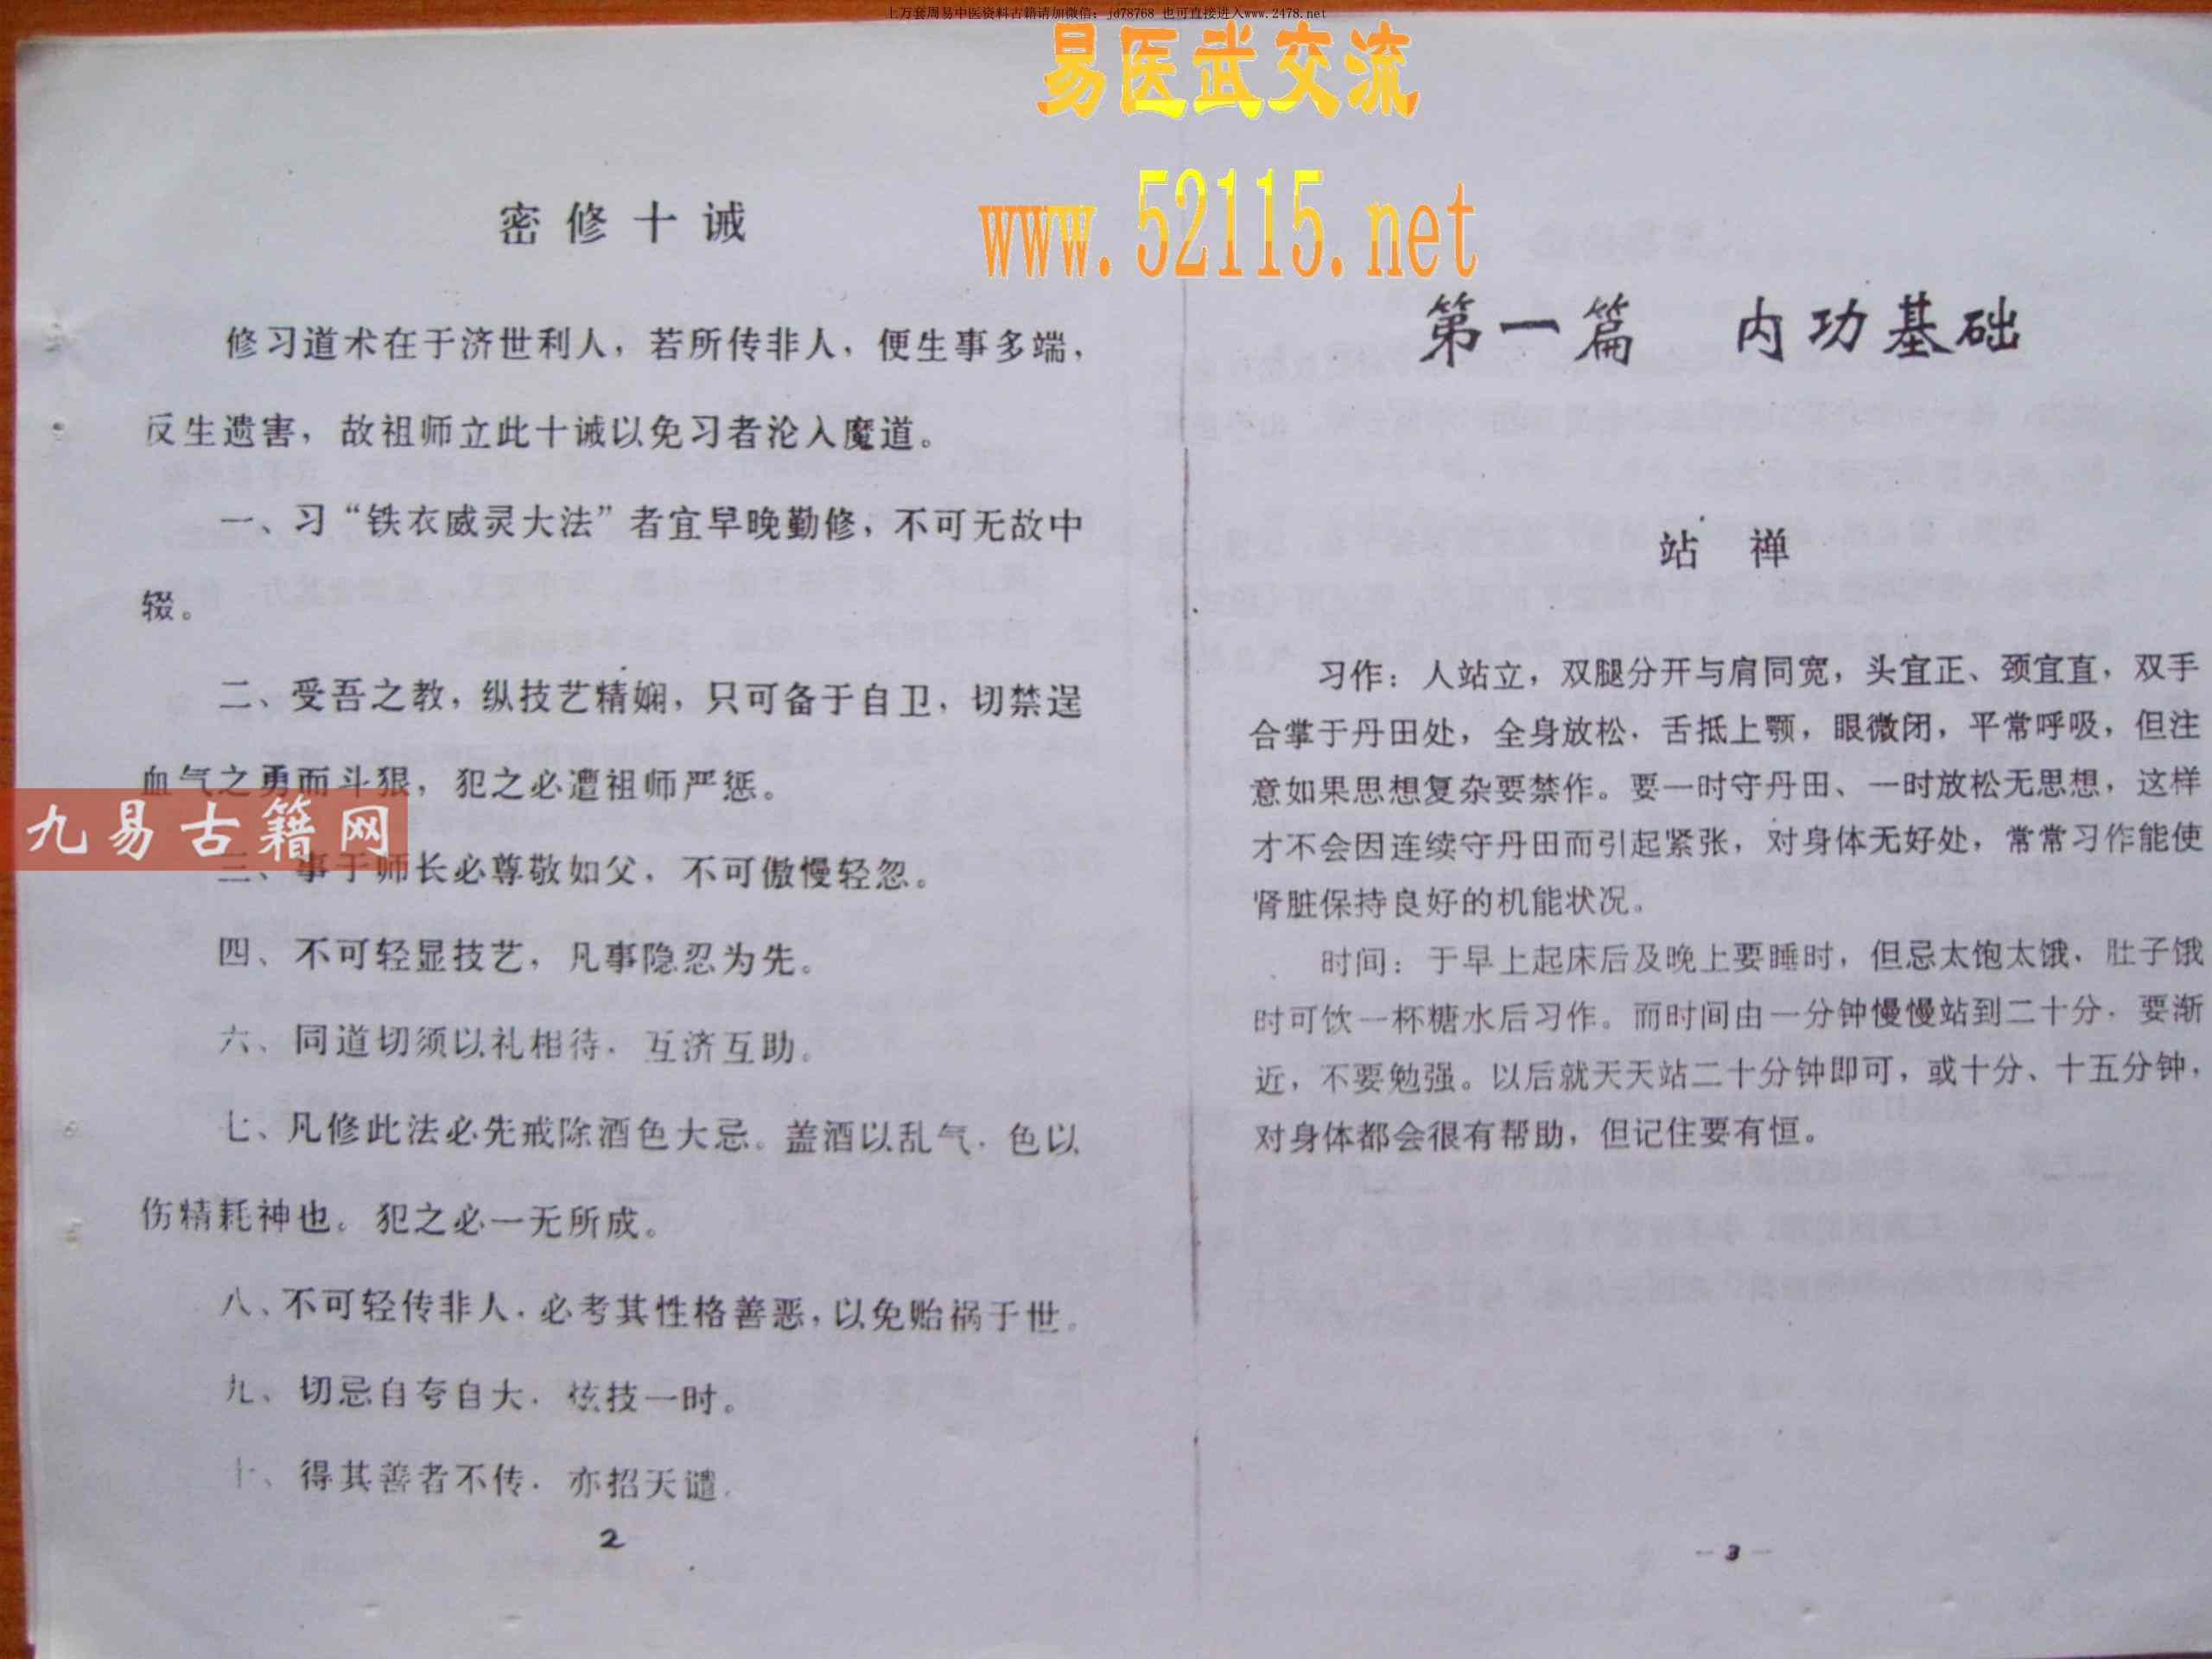 上万套周易中医资料古籍请加微信：jd78768 也可直接进入www.2478.net
易医武交流
www.52115.net
密修十诫
修习道术在于济世利人，若所传非人，便生事多端，
反生遗害，故祖师立此十诫以免习者沦入魔道。
一、习“铁衣威灵大法”者宜早晚勤修，不可无故中
辍。
二、受吾之教，纵技艺精娴，只可备于自卫，切禁逞
血气之勇而斗狠，犯之必遭祖师严惩。
九易古籍网
三、事于师长必尊敬如父，不可傲慢轻忽。
四、不可轻显技艺，凡事隐忍为先。
六、同道切须以礼相待，互济互助。
七、凡修此法必先戒除酒色大忌。盖酒以乱气，色以
伤精耗神也。犯之必一无所成。
八、不可轻传非人，必考其性格善恶，以免贻祸于世。
九、切忌自夸自大，炫技一时。
十、得其善者不传，亦招天谴。
2
第一篇　内功基础
站禅
习作：人站立，双腿分开与肩同宽，头宜正、颈宜直，双手
合掌于丹田处，全身放松，舌抵上颚，眼微闭，平常呼吸，但注
意如果思想复杂要禁作。要一时守丹田、一时放松无思想，这样
才不会因连续守丹田而引起紧张，对身体无好处，常常习作能使
肾脏保持良好的机能状况。
时间：于早上起床后及晚上要睡时，但忌太饱太饿，肚子饿
时可饮一杯糖水后习作。而时间由一分钟慢慢站到二十分，要渐
近，不要勉强。以后就天天站二十分钟即可，或十分、十五分钟，
对身体都会很有帮助，但记住要有恒。
—3—